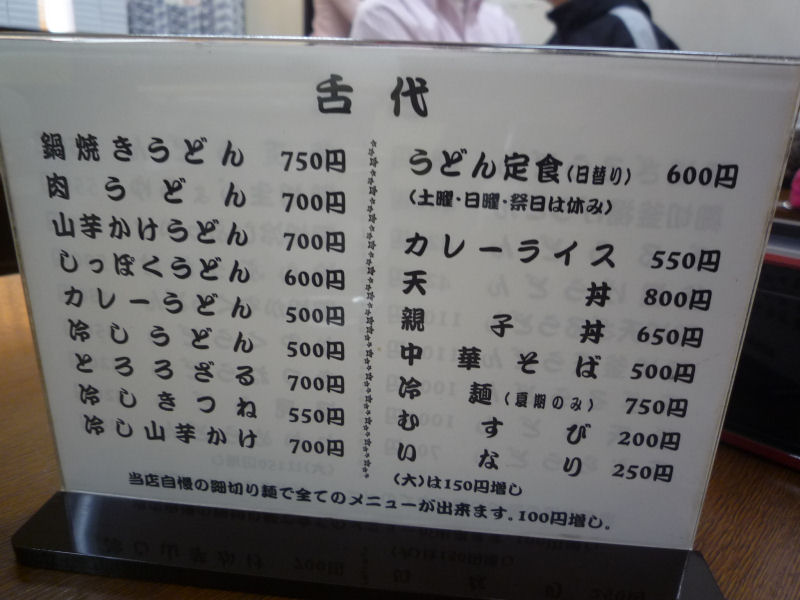 舌代
鍋焼きうどん 750円
肉うどん 700円
山芋かけうどん 700円
しっぽくうどん 600円
カレーうどん 500円
冷しうどん 500円
とろろざる 700円
冷しきつね 550円
冷し山芋かけ 700円
うどん定食(日替り) 600円
(土曜・日曜・祭日は休み)
カレーライス 550円
天丼 800円
親子丼 650円
中華そば 500円
冷麺(夏期のみ) 750円
むすび 200円
いなり 250円
(大)は150円増し
当店自慢の細切り麺で全てのメニューが出来ます。100円増し。